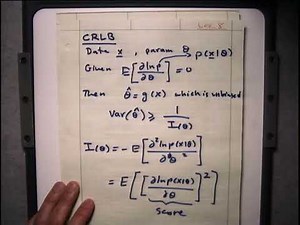 CRLB
Data x, param θ p(x|θ)
Given E[∂lnp/∂θ] = 0
Then θ̂ = g(x) which is unbiased
Var(θ̂) ≥ 1/I(θ)
I(θ) = -E[∂²lnp(x|θ)/∂θ²]
= E[[∂lnp(x|θ)/∂θ]²]
score